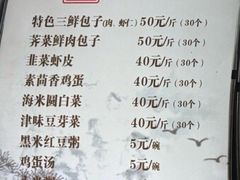 特色三鲜包子(肉、虾仁) 50元/斤(30个)
荠菜鲜肉包子 50元/斤(30个)
韭菜虾皮 40元/斤(30个)
素茴香鸡蛋 40元/斤(30个)
海米圆白菜 40元/斤(30个)
津味豆芽菜 40元/斤(30个)
黑米红豆粥 5元/碗
鸡蛋汤 5元/碗